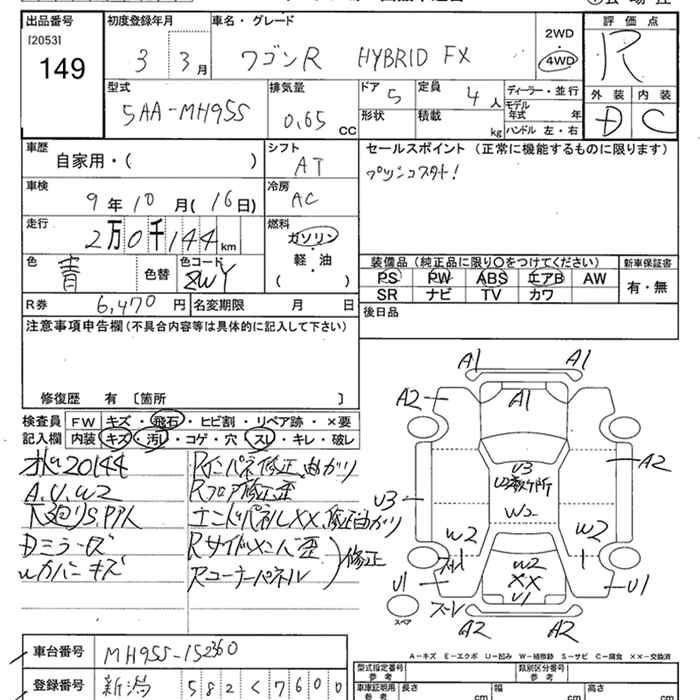 出品番号
[2053]
149
初度登録年月
3 3月
車名・グレード
ワゴンR HYBRID FX
2WD
4WD
評価点
R
外装 内装
D C
型式
5AA-MH95S
排気量
0.65 CC
ドア 5
定員 4人
形状
積載 kg
ディーラー・並行
モデル年式 年
ハンドル 左・右
車歴
自家用・( )
シフト
AT
車検
9年10月(16日)
冷房
AC
走行
2万0千144km
燃料
ガソリン
・
軽油
( )
色
青
色替
色コード
ZWY
R券 6,470円
名変期限 月 日
セールスポイント(正常に機能するものに限ります)
装備品(純正品に限り〇をつけてください)
PS PW ABS エアB AW
SR ナビ TV カワ
新車保証書
有・無
後日品
注意事項申告欄(不具合内容等は具体的に記入して下さい)
修復歴 有 〔箇所 〕
検査員記入欄
FW キズ・飛石・ヒビ割・リペア跡・×要
内装 キズ・汚レ・コゲ・穴・スレ・キレ・破レ
A.U.W2
下廻りS.P大
Dミラーズ
Rインパネ修正、曲がり
Rフロア修正歪
エンドパネルXX、修正曲がり
Rサイドメンバ歪
Rコーナーパネル
修正
A1 A1
A2 A1
A2
U3
U3
W2 W2
W2
XX
U1
U1 U1
A2 A2
スペア
A-キズ E-エクボ U-凹み W-補修跡 S-サビ C-腐食 XX-交換済
車台番号
MH95S-152360
登録番号
新潟 582く7600
型式指定番号
参考
類別区分番号
参考
車庫証明用
参考
長さ cm
幅 cm
高さ cm